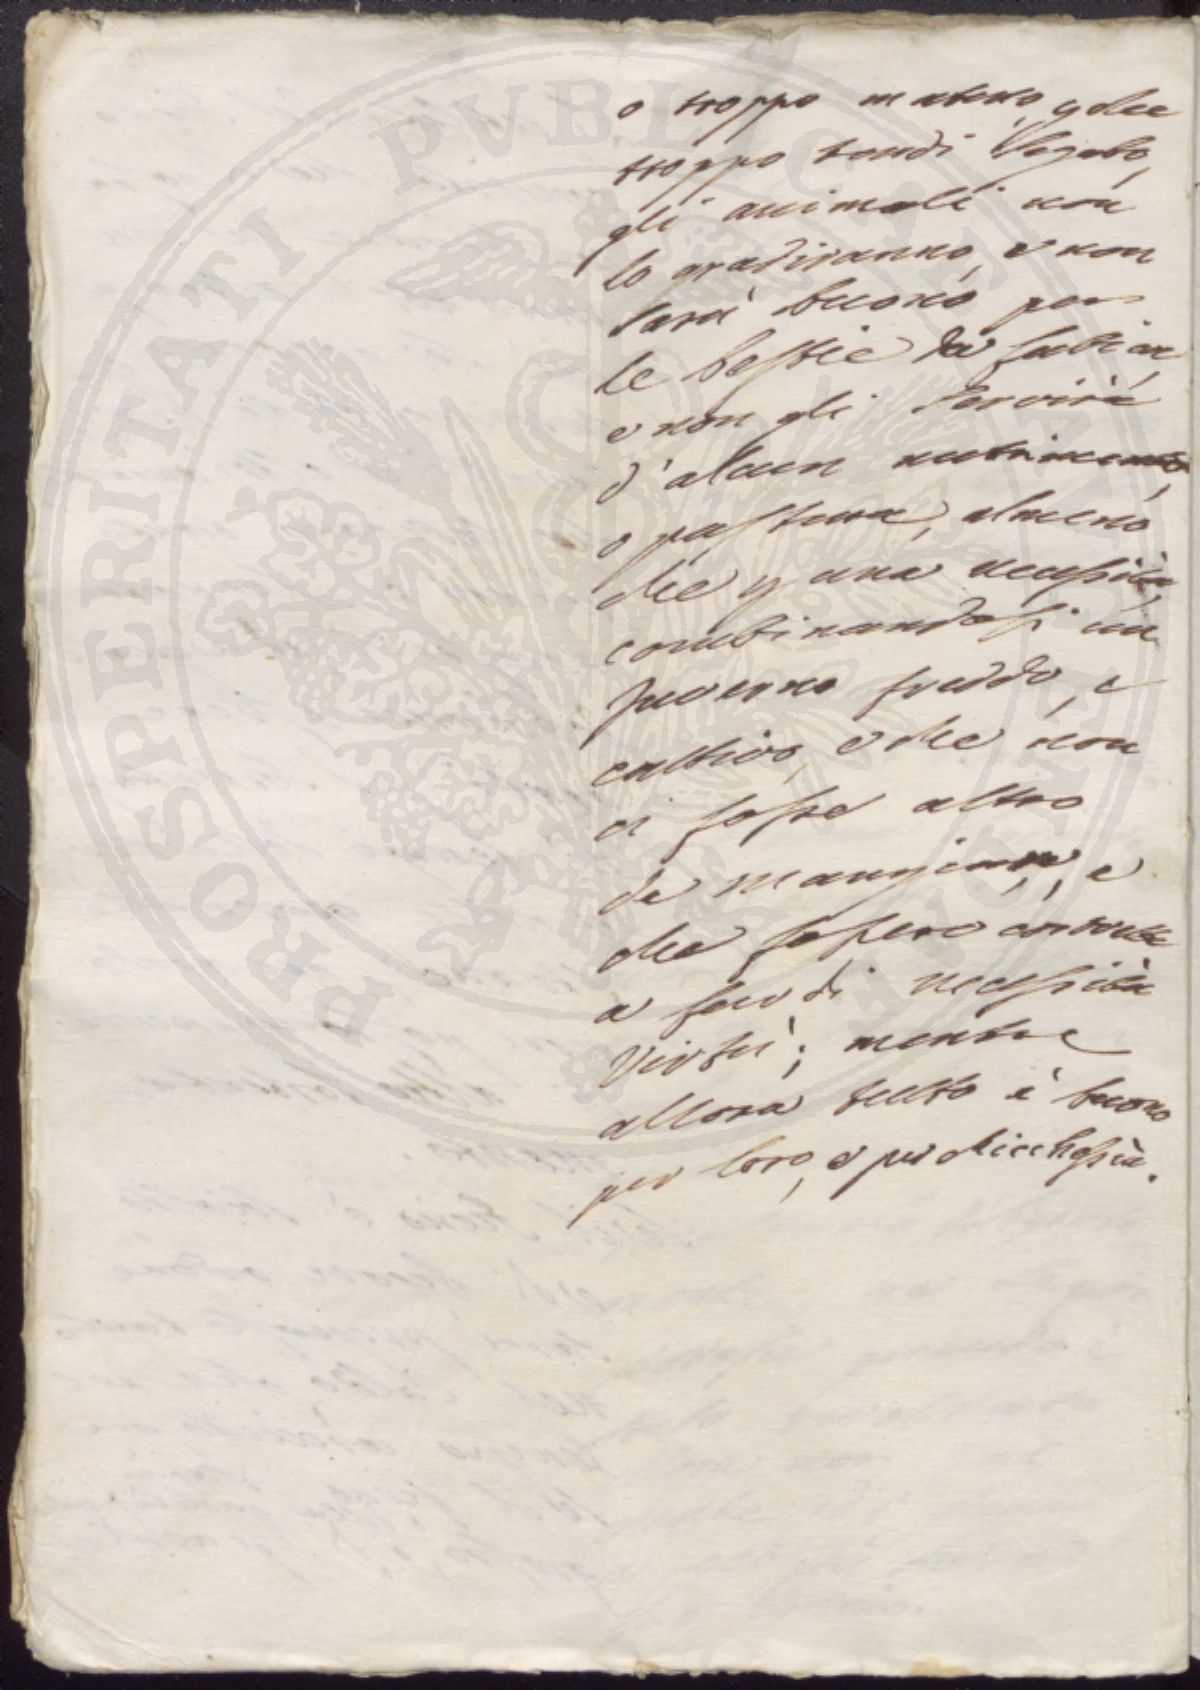 PROSPERITATI PVBLICAE
o troppo maturo, e che
troppo tardi segato,
gli animali non
lo gradiranno, e non
sarà buono per
le bestie da
e non gli servirà
d'alcun nutrimento,
o pastura, almeno
che p una necessità,
combinandosi un
Inverno freddo, e
cattivo, e che non
ci fosse altro
da mangiare, e
che fossero
a far di necessità
Virtù; mentre
allora tutto è buono
per loro, e per chicchessia.